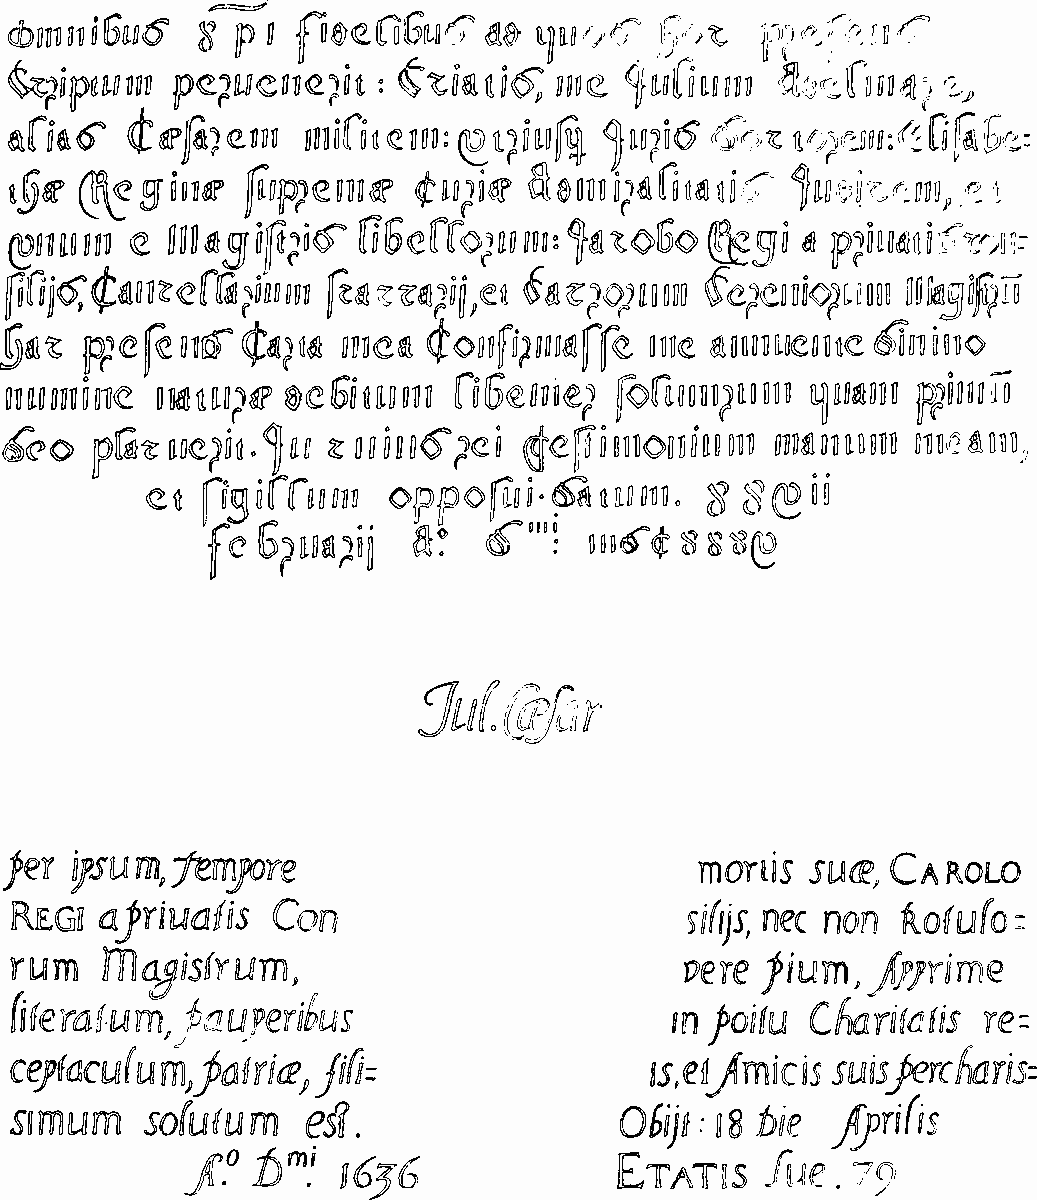 Omnibus X̄pi fidelibus ad quos hoc presens
Scriptum peruenerit: Sciatis, me Julium Adelmare,
alias Cæsarem militem: utriusq Juris Doctorem: Elisabe=
thæ Reginæ supremæ Curiæ Admiralitatis Judicem, et
unum e Magistris libellorum: Jacobo Regi a priuatis Con=
silijs, Cancellarium scaccarij, et Sacrorum Scriniorum Magistrū
hac presens Carta mea Confirmasse me annuente Divino
numine naturæ debitum libenter soluturum quam primū
Deo placuerit. In cuius rei Testimonium manum meam,
et sigillum opposui. Datum. XXVii
februarij A.º D^mi: MDCXXXV
Jul. Cæsar
per ipsum, tempore mortis suæ, CAROLO
REGI a priuatis Con silijs, nec non Rotulo=
rum Magistrum, vere pium, Apprime
literatum, pauperibus in poitu Charitatis re=
ceptaculum, patriæ, fili= is, et Amicis suis percharis=
simum solutum est. Obijt: 18 Die Aprilis
A.º D^mi. 1636 ETATIS Sue. 79